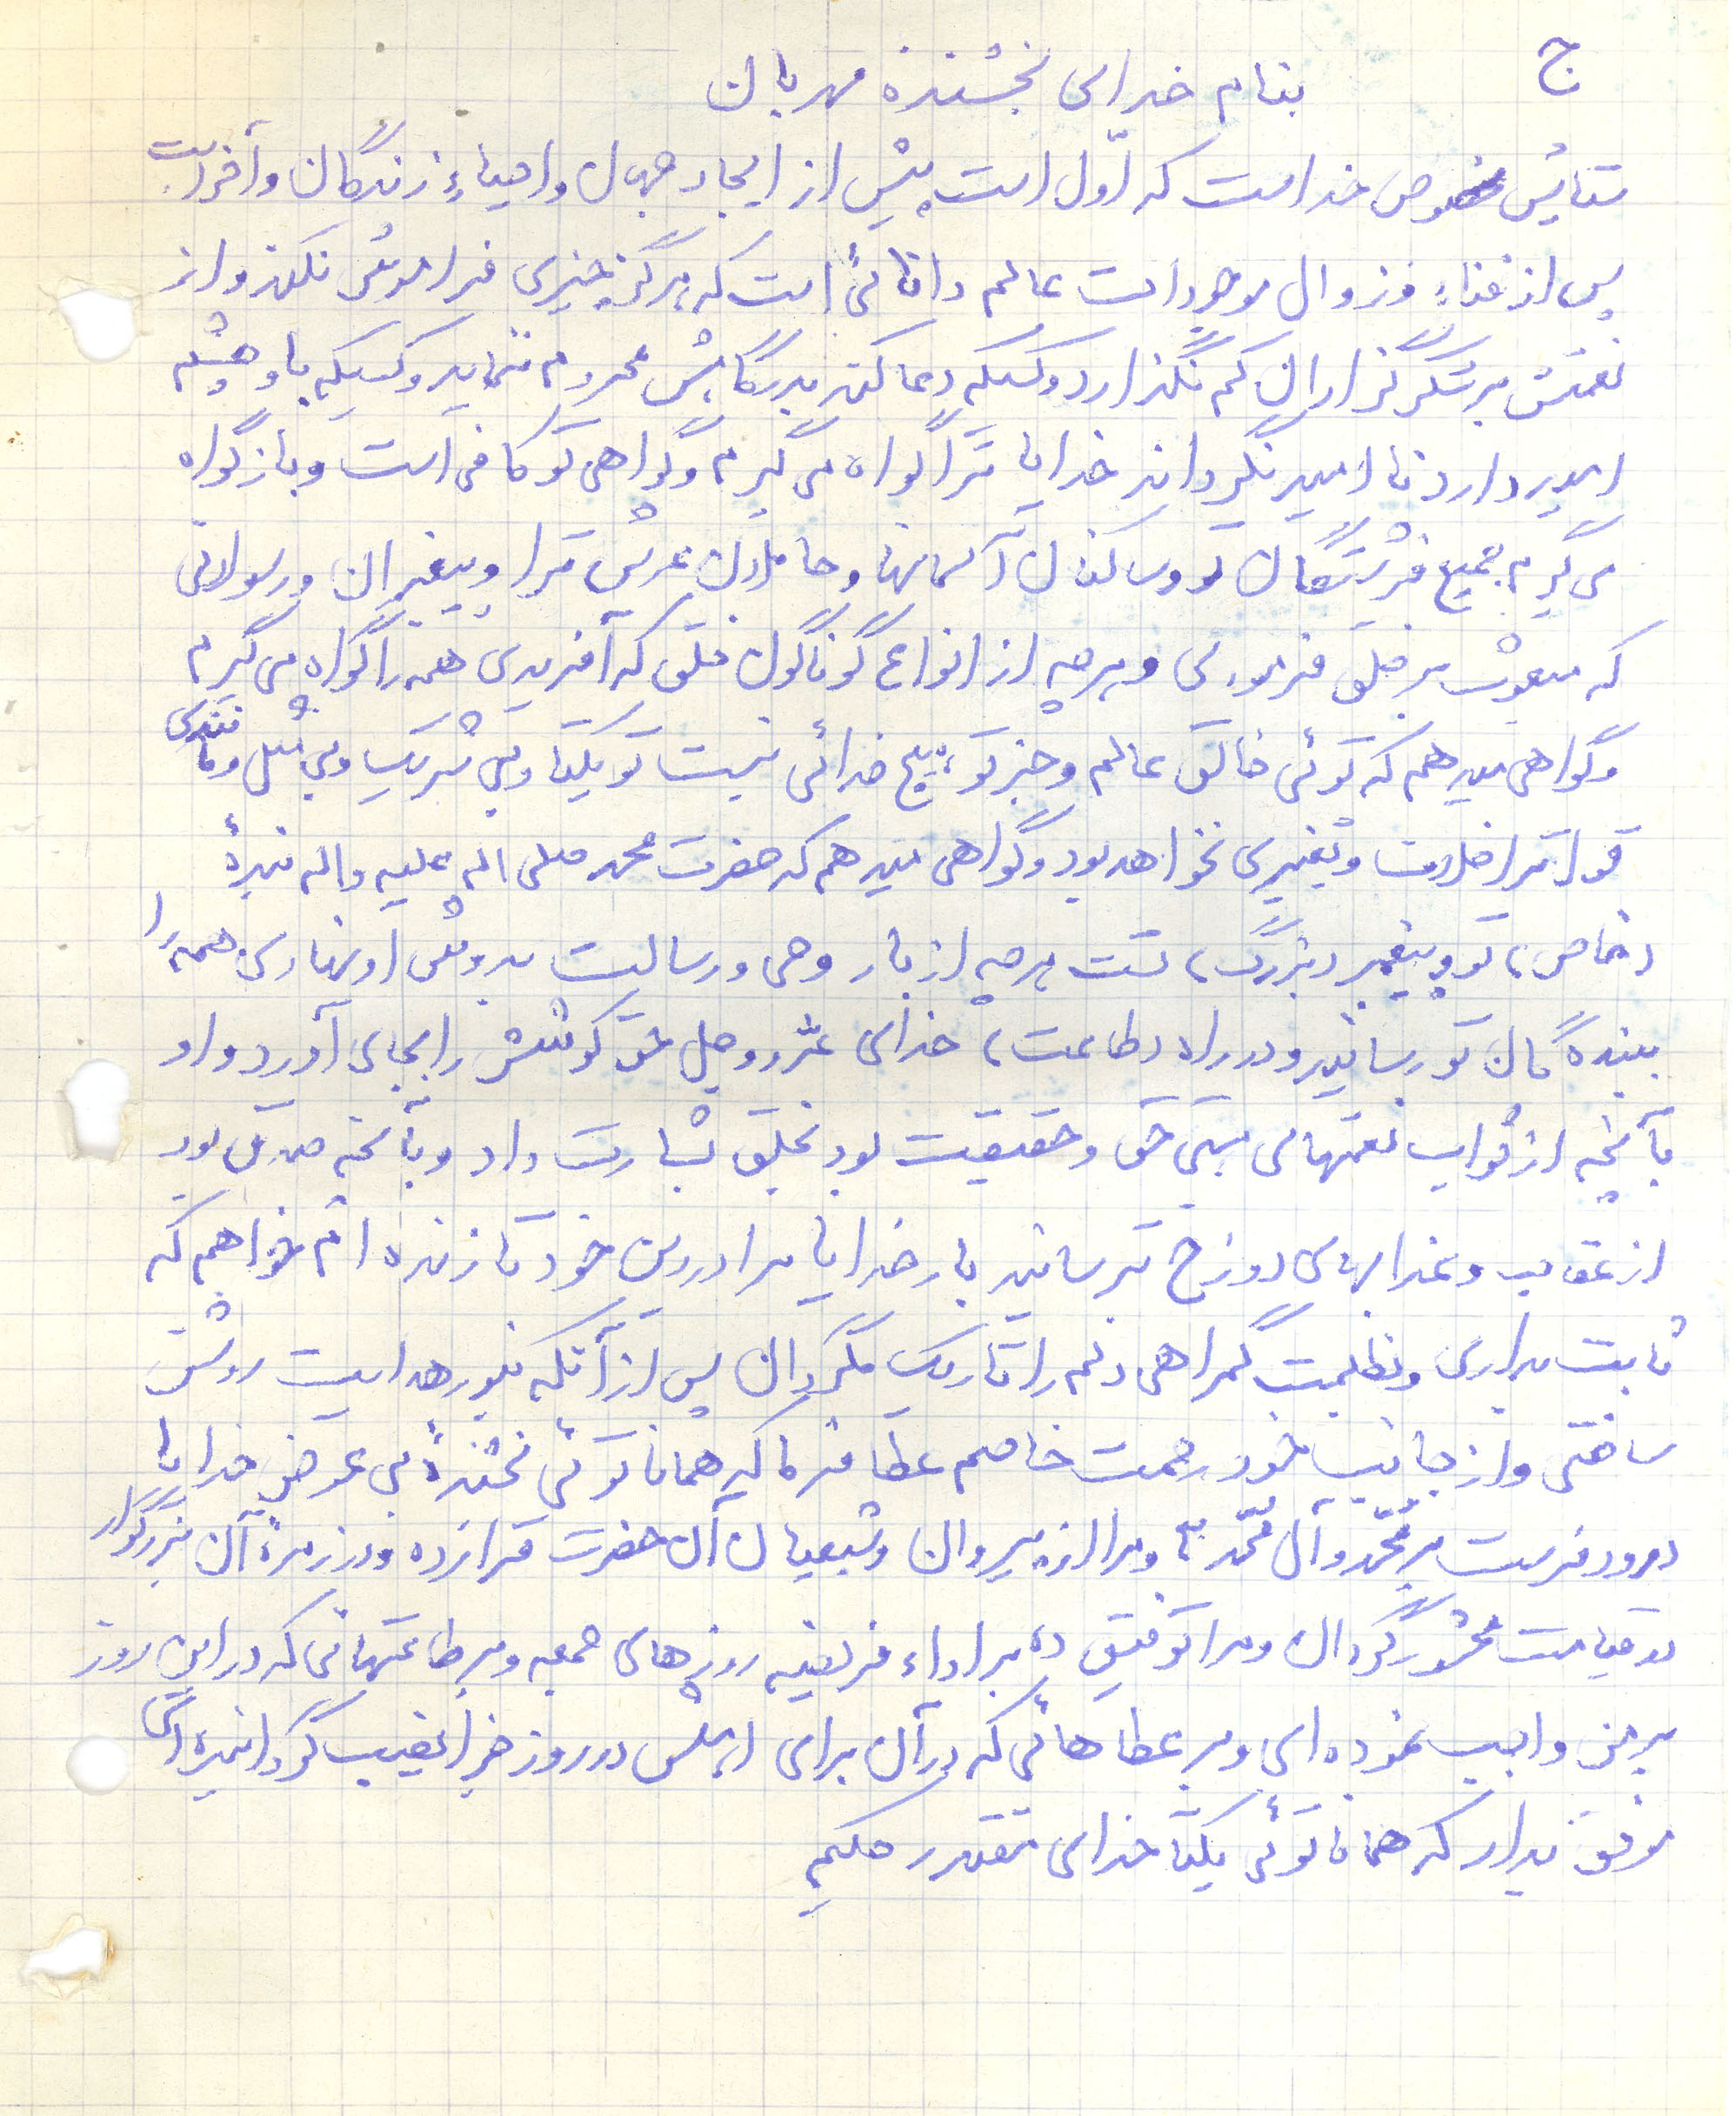 ج
بنام خدای بخشنده مهربان
ستایش مخصوص خداست که اوّل است پیش از ایجاد جهان و احیاء زندگان و آخر است
پس از فناء و زوال موجودات عالم دانائی است که هرگز چیزی فراموش نکند و از
نعمتش بر شکرگزاران کم نگذارد و کسیکه دعا کند بدرگاهش محروم ننماید و کسیکه باو چشم
امید دارد نا امید نگرداند خدایا ترا گواه می گیرم و گواهی تو کافی است و باز گواه
می گیرم جمیع فرشتگان تو و ساکنان آسمانها و حاملان عرش ترا و پیغمبران و رسولانی
که مبعوث بر خلق فرمودی و هر چه از انواع گوناگون خلق که آفریدی همه را گواه می گیرم
و گواهی میدهم که توئی خالق عالم و جز تو هیچ خدائی نیست تو یکتا و بی شریک و بی مثل و مانندی
قول ترا خلاف و تغییری نخواهد بود و گواهی میدهم که حضرت محمد صلی اله علیه و اله بندهٔ
(خاص) تو و پیغمبر (بزرگ) تست هر چه از بار وحی و رسالت بدوش او نهادی همه را
ببنده گان تو رسانید و در راه (طاعت) خدای عز و جل حق کوشش را بجای آورد و او
بآنچه از ثواب نعمتهای بهشتی حق و حقیقت بود بخلق بشارت داد و بآنچه صدق بود
از عقاب و عذابهای دوزخ ترسانید بار خدایا مرا در دین خود تا زنده ام خواهم که
ثابت بداری و بظلمت گمراهی دلم را تاریک مگردان پس از آنکه بنور هدایت روشن
ساختی و از جانب خود رحمت خاصم عطا فرما که همانا توئی بخشندهٔ بی عوض خدایا
درود فرست بر محمّد و آل محمّد و مرا از پیروان و شیعیان آن حضرت قرار ده و در زمرهٔ آن بزرگوار
در قیامت محشور گردان و مرا توفیق ده بر اداء فریضه روزهای جمعه و بر طاعتهائی که در این روز
بر من واجب نموده ای و بر عطاهائی که در آن برای اهلش در روز جزا نصیب گردانیده ای
موفق بدار که همانا توئی یکتا خدای مقتدر حکیم